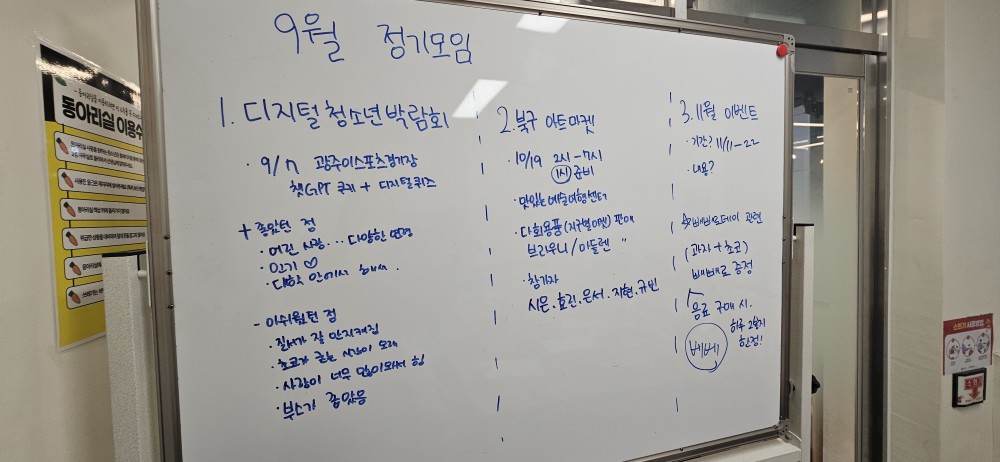 9월 정기모임
1. 디지털 청소년 박람회
· 9/7 광주이스포츠경기장
챗GPT 쿠키 + 디지털퀴즈
+ 좋았던 점
· 어린 사람 ... 다양한 연령
· 인기 ♡
· 대학 안에서 해서.
- 아쉬웠던 점
· 질서가 잘 안지켜짐
· 초코가 굳는 시간이 오래
· 사람이 너무 많이와서 힘
· 부스가 좁았음
2. 북구 아트마켓
· 10/19 2시-7시
1시 준비
· 맛있는예술여행센터
· 다회용품(지구별이옷) 판매
브라우니/마들렌 "
· 참가자
시은·효진·은서·지현·규빈
3. 11월 이벤트
· 기간? 11/11-22
· 내용?
☆빼빼로데이 관련
(과자+초코)
빼빼로 증정
음료 구매 시.
빼빼
하루 2봉지
한정!
동아리실 이용수